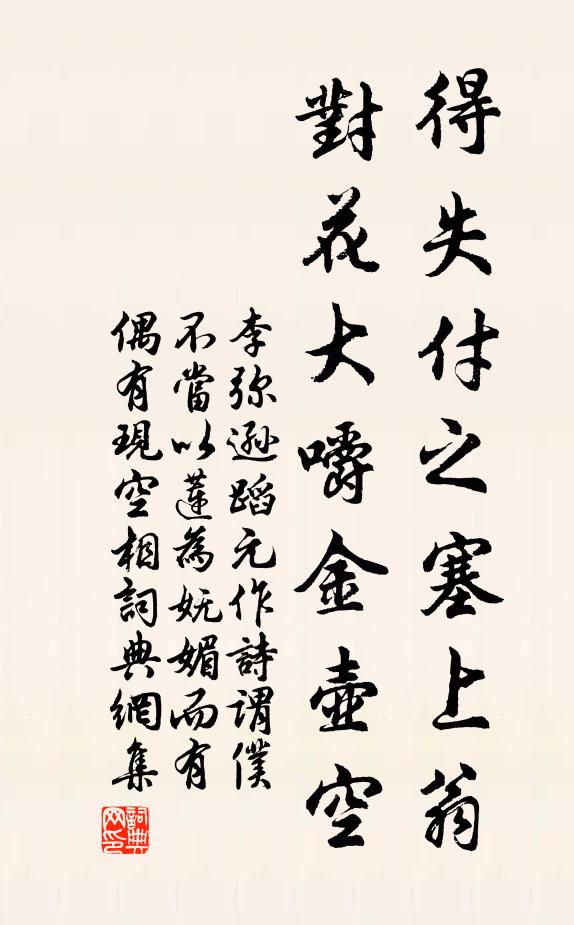 得失付之塞上翁
對花大嚼金壺空
李弥遜蹈元作詩謂僕
不當以蓮為妩媚而有
偶有現空相詞典網集
詞典網印